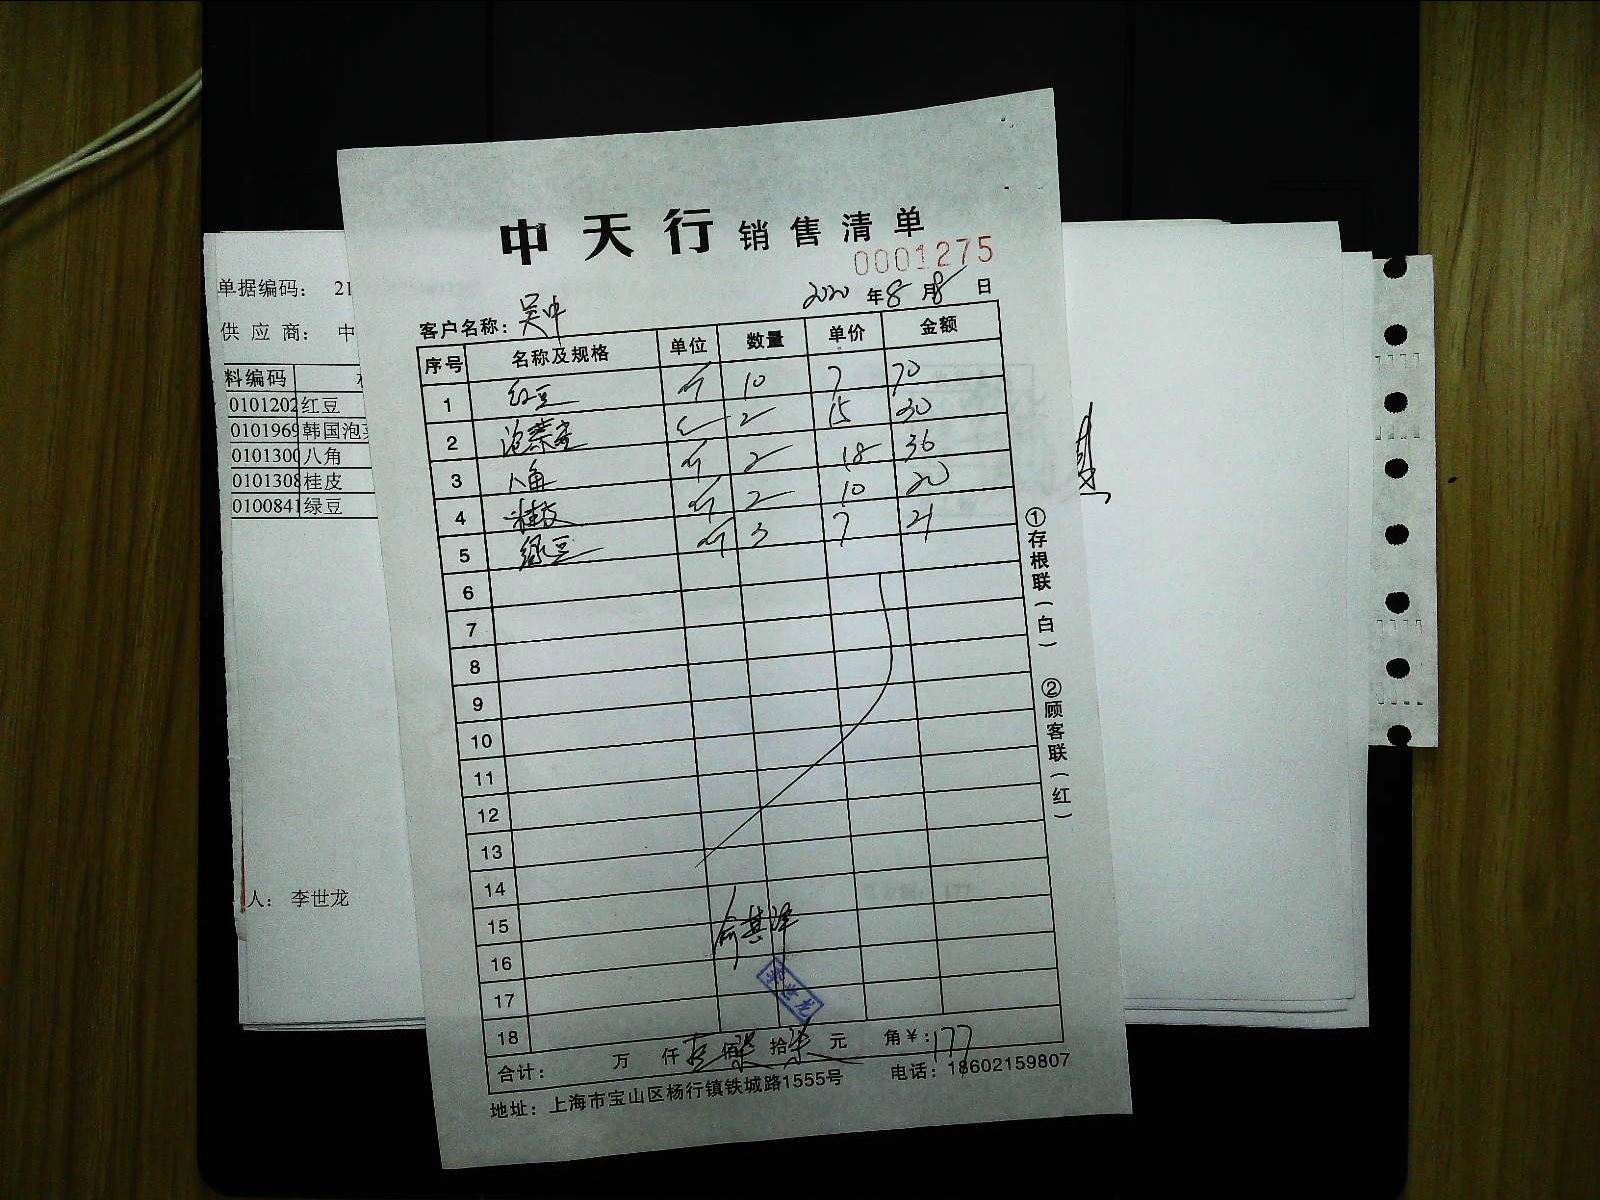 中天行销售清单
0001275
2020年8月8日
客户名称：吴中
序号 名称及规格 单位 数量 单价 金额
1 红豆 斤 10 7 70
2 泡菜 2 15 30
3 八角 斤 2 18 36
4 桂皮 斤 2 10 20
5 绿豆 斤 3 7 21
6
7
8
9
10
11
12
13
14
15
16
17
18
俞其泽
李世龙
合计： 万 仟 佰 拾 元 角 ¥：177
地址：上海市宝山区杨行镇铁城路1555号 电话：18602159807
①存根联（白） ②顾客联（红）
单据编码： 21
供应商： 中
料编码
0101202 红豆
0101969 韩国泡菜
0101300 八角
0101308 桂皮
0100841 绿豆
人： 李世龙